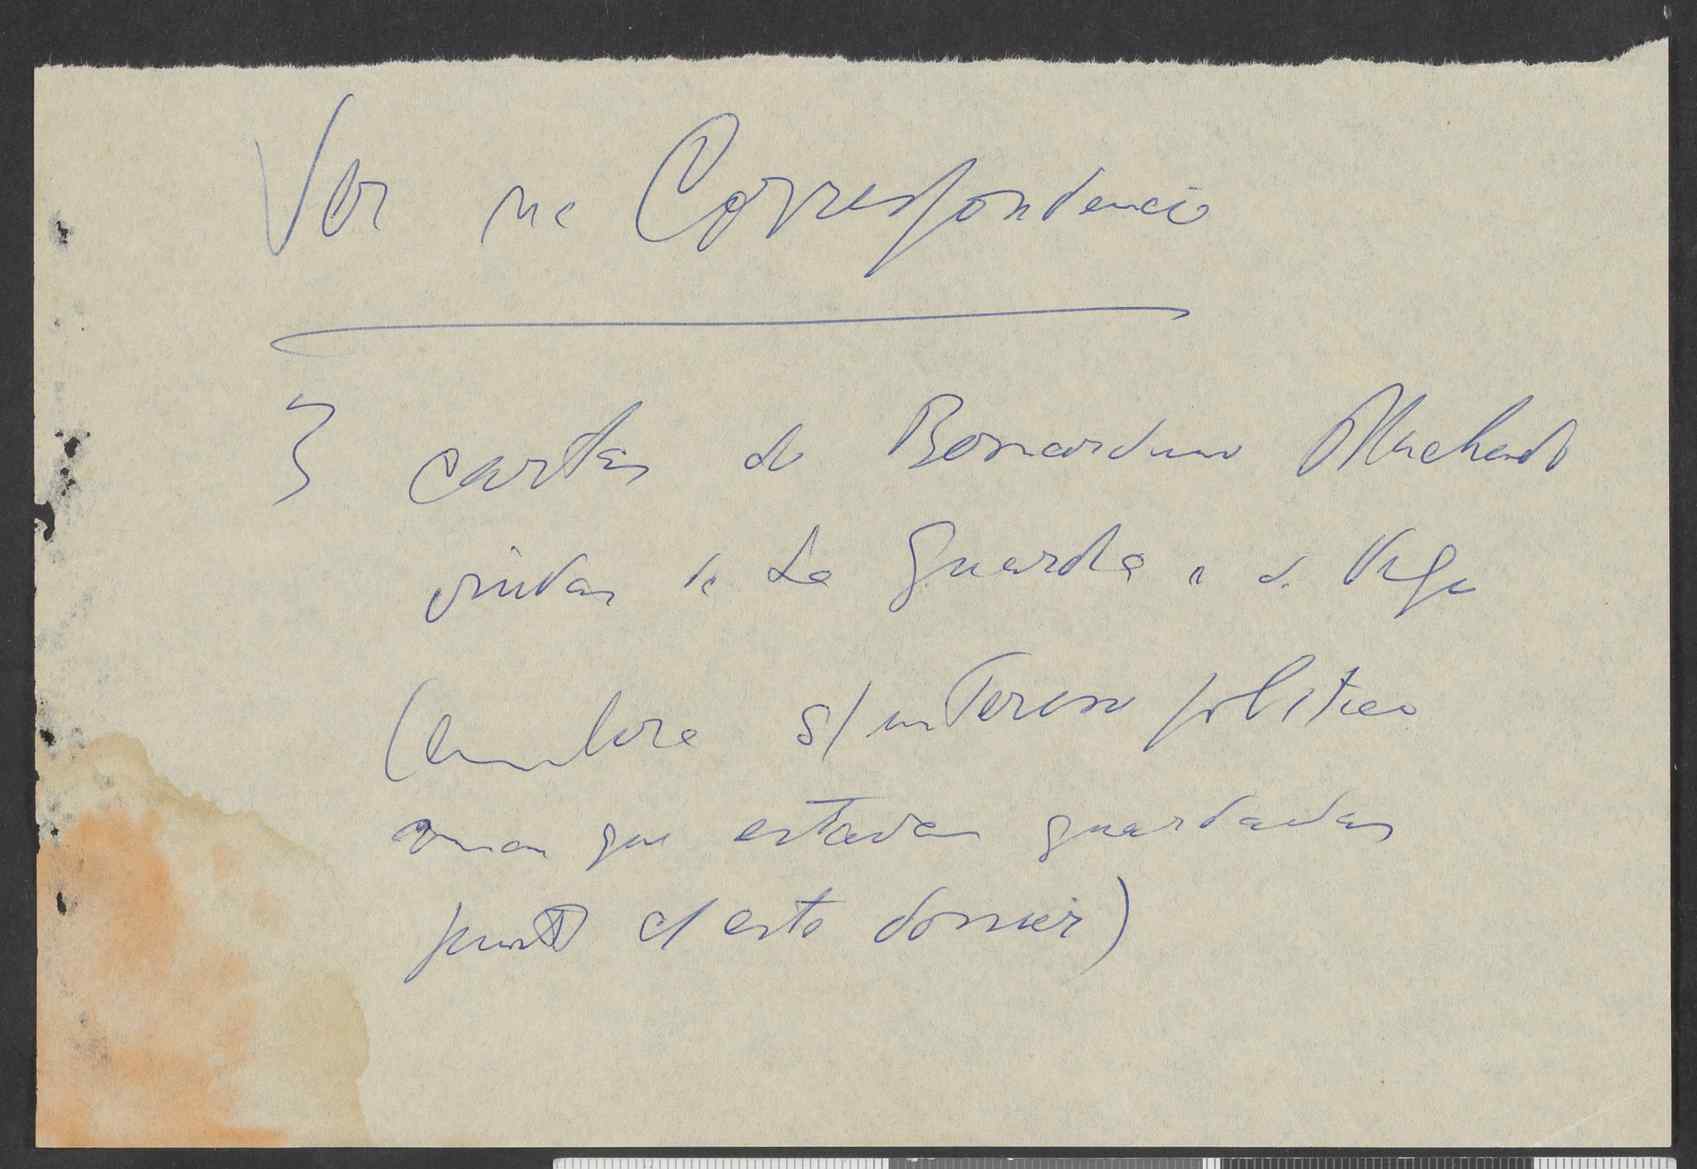 Ver na Correspondencia
3 cartas de Bernardino Machado
vindas de La Guardia e de Vigo
(embora s/ interesse politico
mas que estavam guardadas
junto c/ este dossier)